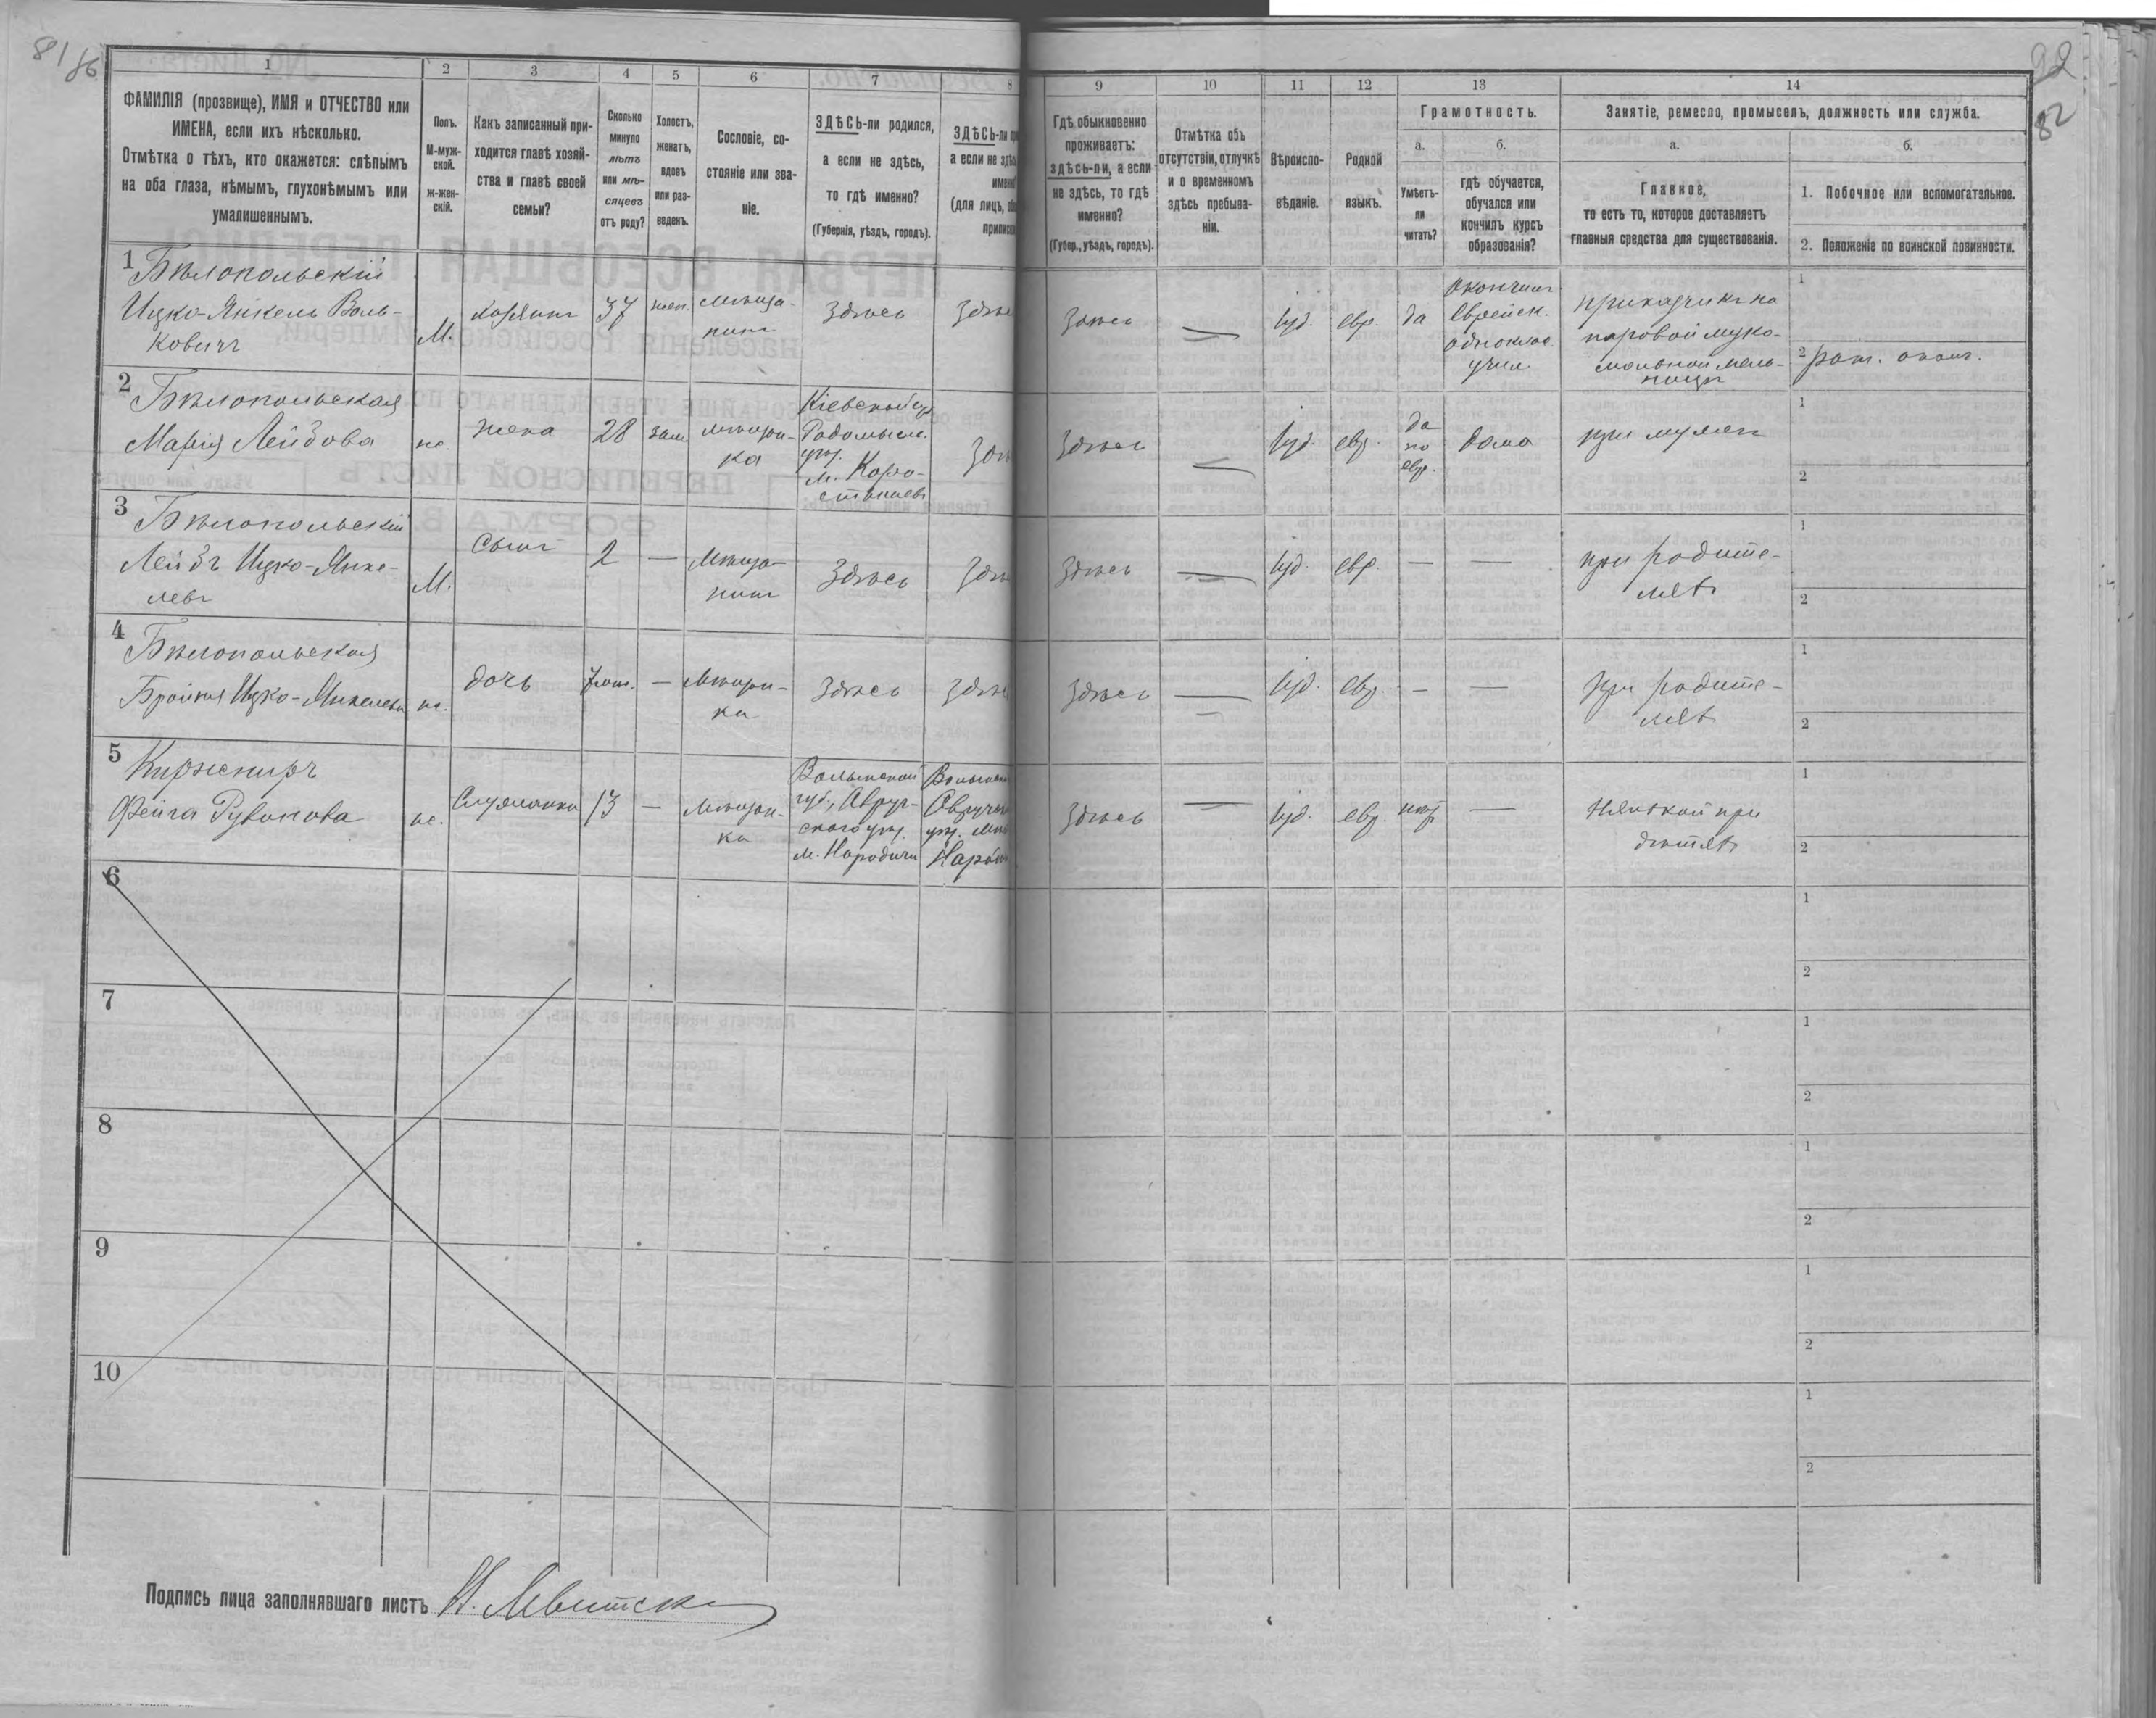 81/86
92
82
1 2 3 4 5 6 7 8 9 10 11 12 13 14
ФАМИЛІЯ (прозвище), ИМЯ и ОТЧЕСТВО или
ИМЕНА, если ихъ нѣсколько.
Отмѣтка о тѣхъ, кто окажется: слѣпымъ
на оба глаза, нѣмымъ, глухонѣмымъ или
умалишеннымъ.
Полъ.
М-муж-
ской.
ж-жен-
скій.
Какъ записанный при-
ходится главѣ хозяй-
ства и главѣ своей
семьи?
Сколько
минуло
лѣтъ
или мѣ-
сяцевъ
отъ роду?
Холостъ,
женатъ,
вдовъ
или раз-
веденъ.
Сословіе, со-
стояніе или зва-
ніе.
ЗДѢСЬ-ли родился,
а если не здѣсь,
то гдѣ именно?
(Губернія, уѣздъ, городъ).
ЗДѢСЬ-ли
а если не
(для лицъ,
Гдѣ обыкновенно
проживаетъ:
здѣсь-ли, а если
не здѣсь, то гдѣ
именно?
(Губер., уѣздъ, городъ).
Отмѣтка объ
отсутствіи, отлучкѣ
и о временномъ
здѣсь пребыва-
ніи.
Вѣроиспо-
вѣданіе.
Родной
языкъ.
Грамотность.
а.
Умѣетъ-
ли
читать?
б.
гдѣ обучается,
обучался или
кончилъ курсъ
образованія?
Занятіе, ремесло, промыселъ, должность или служба.
а.
Главное,
то есть то, которое доставляетъ
главныя средства для существованія.
б.
1. Побочное или вспомогательное.
2. Положеніе по воинской повинности.
1
Бѣлопольскій
Ицко-Янкель Воль-
ковичъ
М.
хозяинъ
37
жен.
мѣща-
нинъ
Здѣсь
Здѣсь
Іуд.
евр.
да
окончилъ
еврейск.
одноклас.
учил.
прикащикъ на
паровой муко-
мольной мель-
ницѣ
1
2
2
Бѣлопольская
Марія Лейбова
ж.
жена
28
зам.
мѣщан-
ка
Кіевской губ.
Радомысл.
уѣз.
м. Коро-
стышевъ
Здѣсь
Іуд.
евр.
да
по
евр.
дома
при мужѣ
1
2
3
Бѣлопольскій
Лейбъ Ицко-Янке-
левъ
М.
сынъ
2
—
мѣща-
нинъ
Здѣсь
Здѣсь
—
Іуд.
евр.
—
—
при родите-
ляхъ
1
2
4
Бѣлопольская
ж.
дочь
—
мѣщан-
ка
Здѣсь
Здѣсь
—
Іуд.
евр.
—
—
при родите-
ляхъ
1
2
5
Фейга Рувинова
ж.
Служанка
13
—
мѣщан-
ка
Волынской
губ., Авруч-
скаго уѣз.
м. Народичи
Здѣсь
—
Іуд.
евр.
нѣт
—
нянькой при
дѣтяхъ
1
2
6
1
2
7
1
2
8
1
2
9
1
2
10
1
2
Подпись лица заполнявшаго листъ